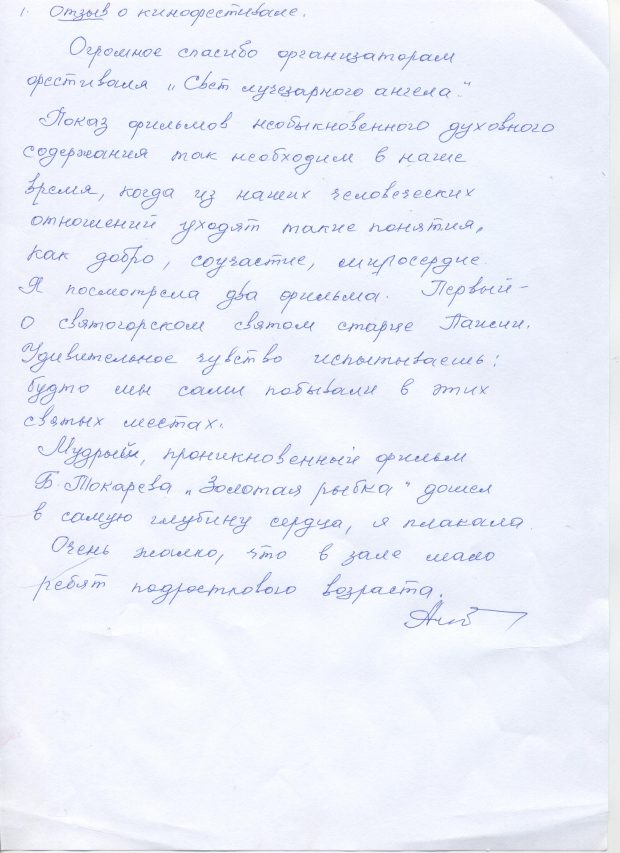 1. Отзыв о кинофестивале.
Огромное спасибо организаторам
фестиваля „Свет лучезарного ангела."
Показ фильмов необыкновенного духовного
содержания так необходим в наше
время, когда из наших человеческих
отношений уходят такие понятия,
как добро, соучастие, милосердие.
Я посмотрела два фильма. Первый -
о святогорском святом старце Паисии.
Удивительное чувство испытываешь:
будто мы сами побывали в этих
святых местах.
Мудрый, проникновенный фильм
Б. Токарева „Золотая рыбка" дошел
в самую глубину сердца, я плакала.
Очень жалко, что в зале мало
ребят подросткового возраста.